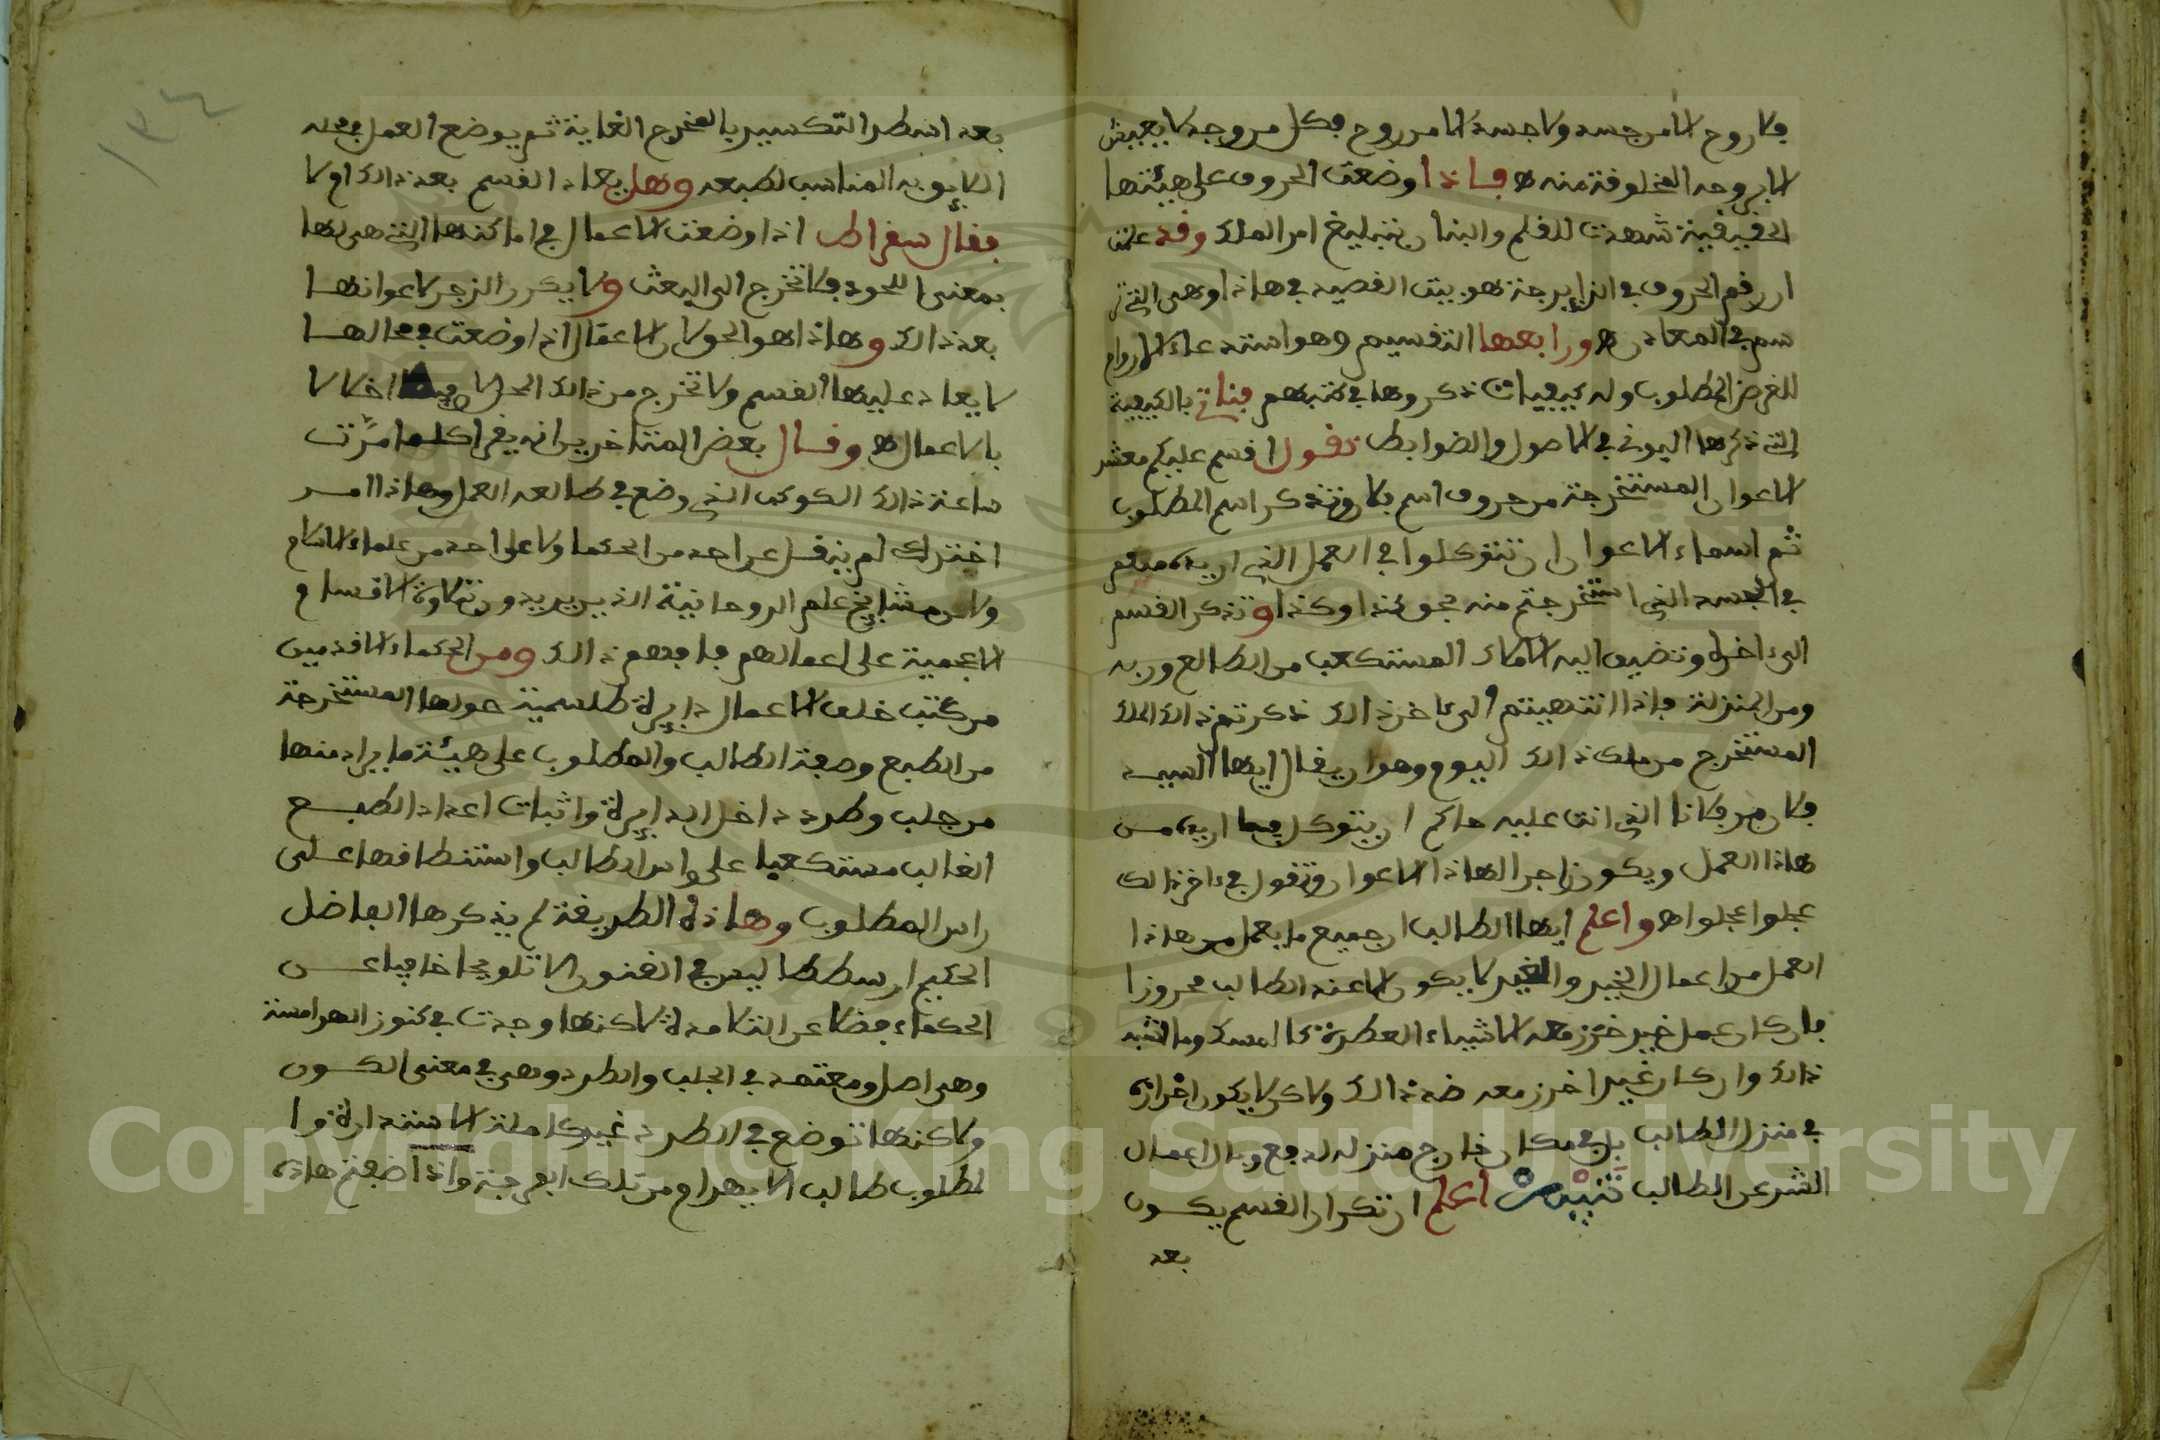 فلا روح الا من جسد ولا جسد الا من روح فكل من وجد لا يعيش
الا بروحه المخلوقة منه ه فاذا وضعت الحروف على هيئتها
الحقيقية شهدت للقلم والبنان بتبليغ امر الملك وقد علمت
ان رقم الحروف في الزايرجة هو بيت القصيد في هاذا وهي التي
سر في المعادن ه ورابعها التقسيم وهو استدعاء الارواح
للغرض المطلوب وله كيفيات ذكروها في كتبهم فناتي بالكيفية
التي ذكرها البوني في الاصول والضوابط تقول اقسم عليكم معشر
الاعوان المستخرجة من حروف اسم فلان وتذكر اسم المطلوب
ثم اسماء الاعوان ان تتوكلوا في العمل الذي اريده منكم
في الجسد الذي استخرجتم منه نحو كذا وكذا وتذكر القسم
الى اخره وتضيف اليه الملك المستكعب من الطالع وربه
ومن المنزلة فاذا انتهيتم الى ءاخر ذالك ذكرتم ذالك الملك
المستخرج من ملك ذالك اليوم وهو ان يقال ايها السيد
فلان من فلانا الذي انت عليه حاكم ان يتوكل فيما اريد من
هاذا العمل ويكون زاجرا لهاذا الاعوان وتقول في ءاخر ذالك
عجلوا عجلوا ه واعلم ايها الطالب ان جميع ما يعمل من هاذا
العمل من اعمال الخير والغير لا يكون الا عند الطالب محروزا
فان كان عمل خير خزن معه الاشياء العطرة كالمسك وما اشبه
ذالك وان كان غيرا خزن معه ضد ذالك ولاكن لا يكون اخرازه
في منزل الطالب بل في مكان خارج منزله لدفع وبال اعمال
الشر عن الطالب تنبيه اعلم ان تكرار القسم يكون
بعد
بعد اسطر التكسير بالمخرج الغاية ثم يوضع العمل في محله
اللايق به المناسب لطبعه وهل يعاد القسم بعد ذالك ام لا
فقال سقراط اذا وضعت الاعمال في اماكنها التي هي لها
بمعنى اللحود فلا تخرج الى البعث ولا يكرر الزجر لاعوانها
بعد ذالك وهاذا هو الحق لان الاعمال اذا وضعت في محالها
لا يعاد عليها القسم ولا تخرج من ذالك المحل اخلالا
بالاعمال ه وقال بعض المتاخرين انه يقرا كلما مرت
ساعة ذالك الكوكب الذي وضع في طالعه العمل وهاذا امر
اخترك لم ينقل عن احد من الحكما ولا على احد من علماء الاسلام
ولا من مشايخ علم الروحانية الذين يريدون تلاوة الاقسام
العجمية على اعمالهم فافهم ذالك ومن الحكماء الاقدمين
من كتب خلف الاعمال دايرة طلسمية حولها المستخرجة
من الطبع وصفة الطالب والمطلوب على هيئة ما يراد منها
من جلب وطرد داخل الدايرة واثبات اعداد الطبع
الغالب مستكعبا على راس الطالب واستنطاقها على
راس المطلوب وهاذه الطريقة لم يذكرها الفاضل
الحكيم ارسططاليس في الفنون الا تلويحا خافيا عن
الحكماء فضلا عن التلامدة لاكنها وجدت في كنوز الهرامسة
وهي اصل ومعتمد في الجلب والطرد وهي في معنى الكون
ولاكنها توضع في الطرد غير كاملة الاستدارة
لمطلوب طالب الا يهرام من تلك الفرجة واذا اضفت هاذه